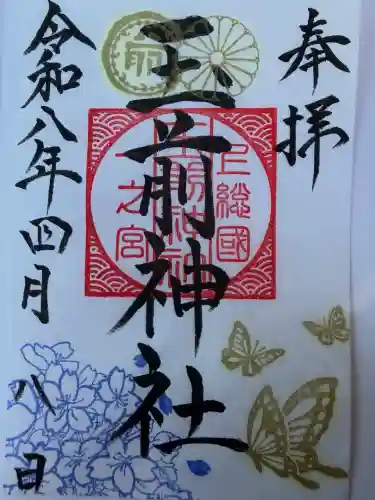 奉拝
玉前神社
上総國
一之宮
令和八年四月
八日